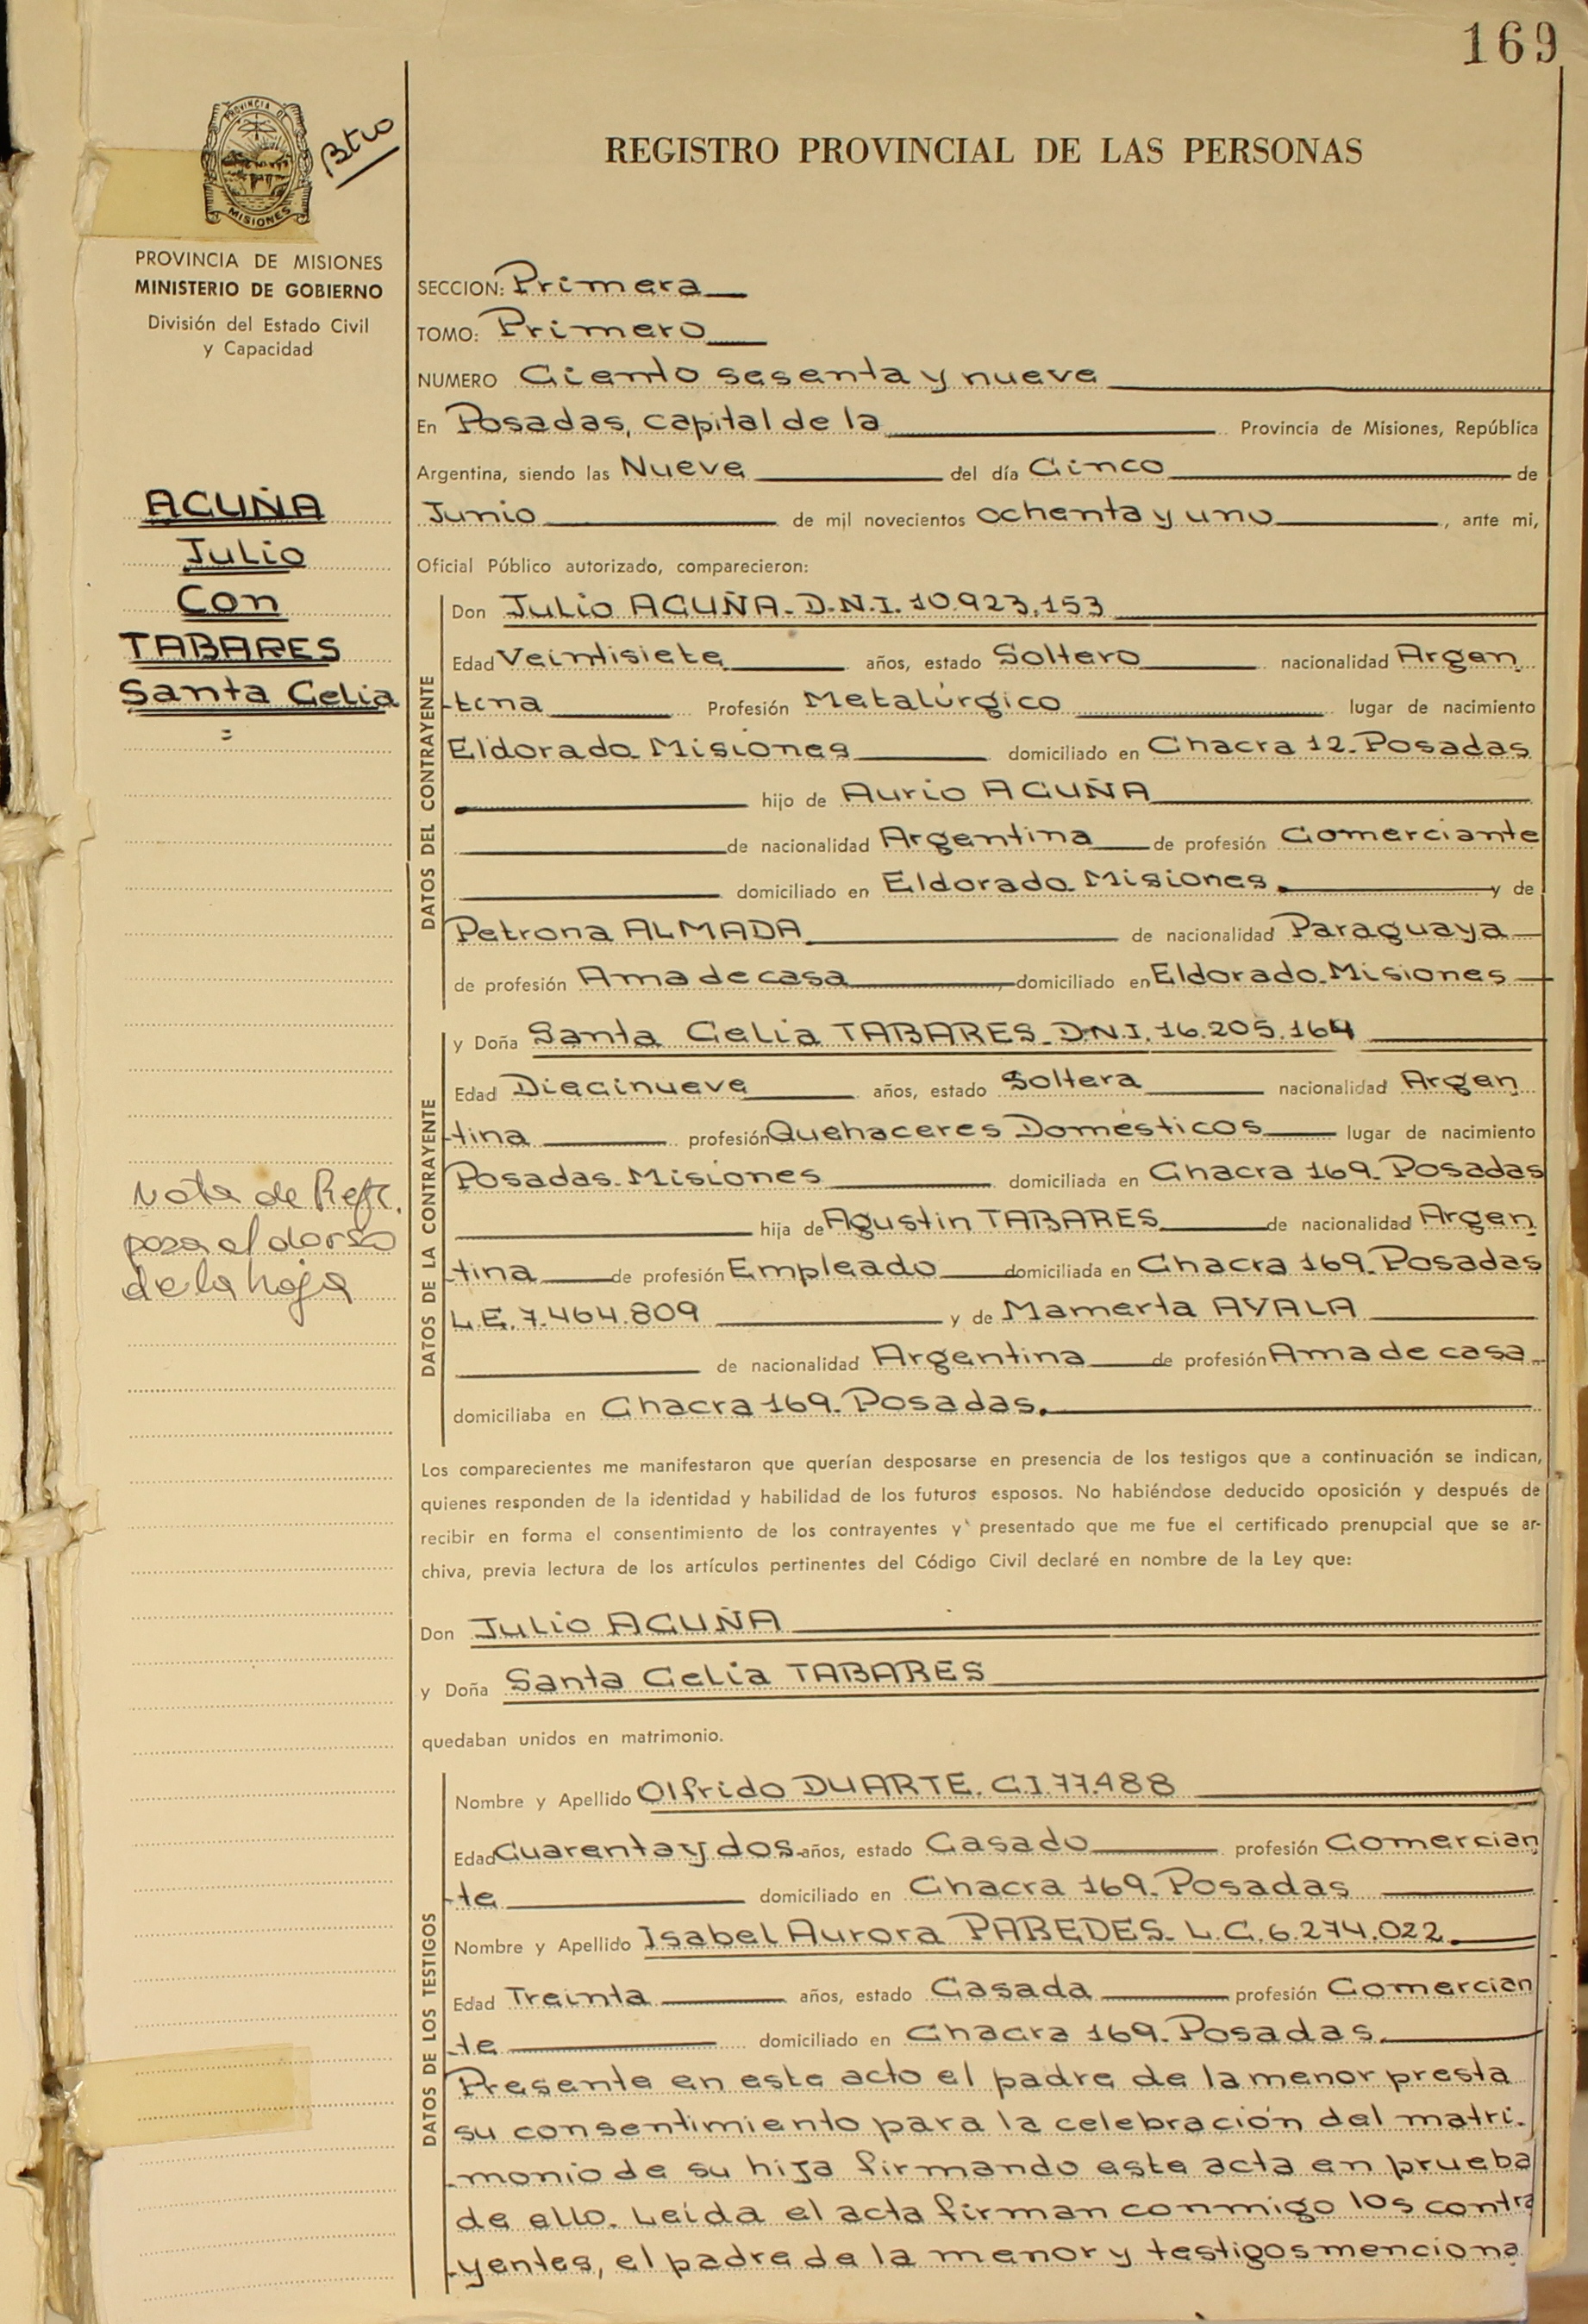 169
PROVINCIA DE
MISIONES
Btio
REGISTRO PROVINCIAL DE LAS PERSONAS
PROVINCIA DE MISIONES
MINISTERIO DE GOBIERNO
División del Estado Civil
y Capacidad
ACUÑA
Julio
Con
TABARES
Santa Celia
=
Nota de Refe.
pasa al dorso
de la hoja
SECCION: Primera
TOMO: Primero
NUMERO Ciento sesenta y nueve
En Posadas, capital de la Provincia de Misiones, República
Argentina, siendo las Nueve del día Cinco de
Junio de mil novecientos ochenta y uno, ante mi,
Oficial Público autorizado, comparecieron:
DATOS DEL CONTRAYENTE
Don Julio ACUÑA. D.N.I. 10.923.153
Edad Veintisiete años, estado Soltero nacionalidad Argen
tina Profesión Metalúrgico lugar de nacimiento
Eldorado. Misiones domiciliado en Chacra 12. Posadas
hijo de Aurio ACUÑA
de nacionalidad Argentina de profesión Comerciante
domiciliado en Eldorado. Misiones. y de
Petrona ALMADA de nacionalidad Paraguaya
de profesión Ama de casa, domiciliado en Eldorado. Misiones
DATOS DE LA CONTRAYENTE
y Doña Santa Celia TABARES. D.N.I. 16.205.164
Edad Diecinueve años, estado Soltera nacionalidad Argen
tina profesión Quehaceres Domésticos lugar de nacimiento
Posadas. Misiones domiciliada en Chacra 169. Posadas
hija de Agustin TABARES de nacionalidad Argen
tina de profesión Empleado domiciliada en Chacra 169. Posadas
L.E. 7.464.809 y de Mamerta AYALA
de nacionalidad Argentina de profesión Ama de casa
domiciliaba en Chacra 169. Posadas.
Los comparecientes me manifestaron que querían desposarse en presencia de los testigos que a continuación se indican,
quienes responden de la identidad y habilidad de los futuros esposos. No habiéndose deducido oposición y después de
recibir en forma el consentimiento de los contrayentes y presentado que me fue el certificado prenupcial que se ar-
chiva, previa lectura de los artículos pertinentes del Código Civil declaré en nombre de la Ley que:
Don Julio ACUÑA
y Doña Santa Celia TABARES
quedaban unidos en matrimonio.
DATOS DE LOS TESTIGOS
Nombre y Apellido Olfrido DUARTE. C.I. 77.488
Edad Cuarenta y dos años, estado Casado profesión Comercian
te domiciliado en Chacra 169. Posadas
Nombre y Apellido Isabel Aurora PAREDES. L.C. 6.274.022
Edad Treinta años, estado Casada profesión Comercian
te domiciliado en Chacra 169. Posadas.
Presente en este acto el padre de la menor presta
su consentimiento para la celebración del matri-
monio de su hija firmando este acta en prueba
de ello. Leída el acta firman conmigo los contra
yentes, el padre de la menor y testigos menciona